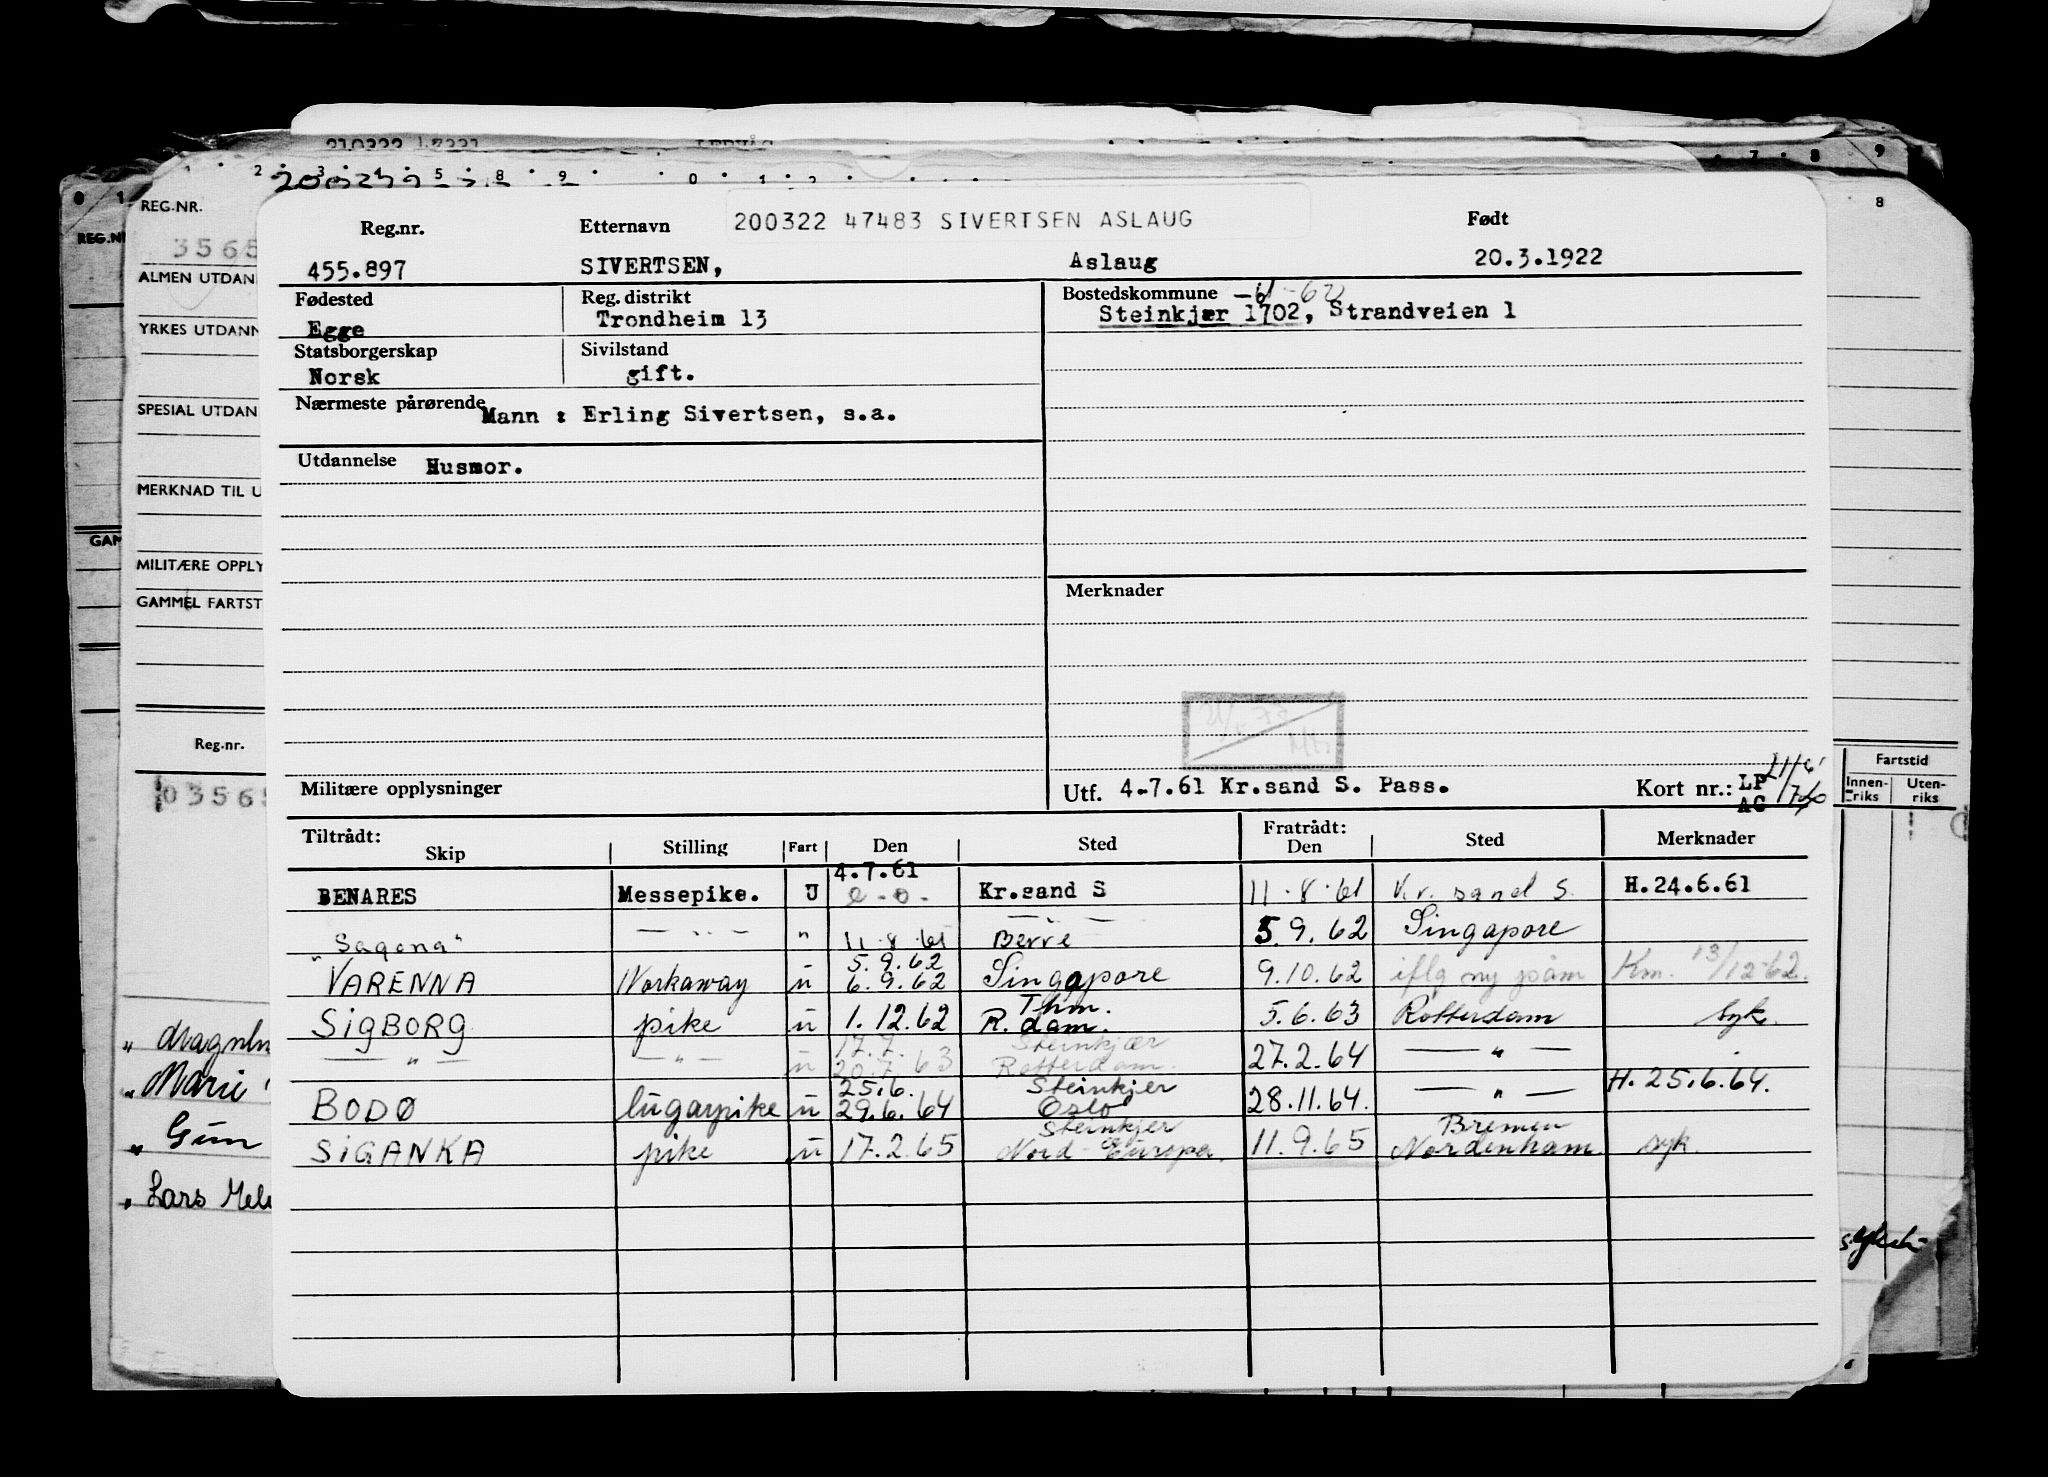 210322
2 3 4 5 8 9 0 1 2
7 8 9
0 1
8
REG.NR.
REG.NR
3565
ALMEN UTDAN
YRKES UTDANN
SPESIAL UTDAN
MERKNAD TIL U
GAM
MILITÆRE OPPLY
GAMMEL FARTST
Reg.nr.
03565
" Marie
" Gun
" Lars
Fartstid
Innen- Uten-
riks riks
200322 47483 SIVERTSEN ASLAUG
Reg.nr. Etternavn Født
455.897 SIVERTSEN, Aslaug 20.3.1922
Fødested Reg. distrikt Bostedskommune
Egge Trondheim 13 Steinkjær 1702, Strandveien 1
Statsborgerskap Sivilstand
Norsk gift.
Nærmeste pårørende Mann : Erling Sivertsen, s.a.
Utdannelse Husmor.
Merknader
Militære opplysninger
Utf. 4-7.61 Kr.sand S. Pass. Kort nr.: LP
AG
Tiltrådt: Fratrådt:
Skip Stilling Fart Den Sted Den Sted Merknader
4.7.61
BENARES Messepike. U Kr.sand S 11.8.61 Kr. sand S. H.24.6.61
"Sagona" — " — " 11.8.61 — " — Berre 5.9.62 Singapore
5.9.62
VARENNA Workaway u 6.9.62 Singapore 9.10.62 iflg ny påm Km. 13/12-62.
Thm.
SIGBORG pike u 1.12.62 R.dam. 5.6.63 Rotterdam syk.
17.7. Steinkjær
— " — — " — u 20.7.63 Rotterdam. 27.2.64 — " —
25.6. Steinkjer H. 25.6.64.
BODØ lugarpike u 29.6.64 Oslo 28.11.64. — " —
Steinkjer Bremen
SIGANKA pike u 17.2.65 Nord-Europa. 11.9.65 Nordenham. syk.